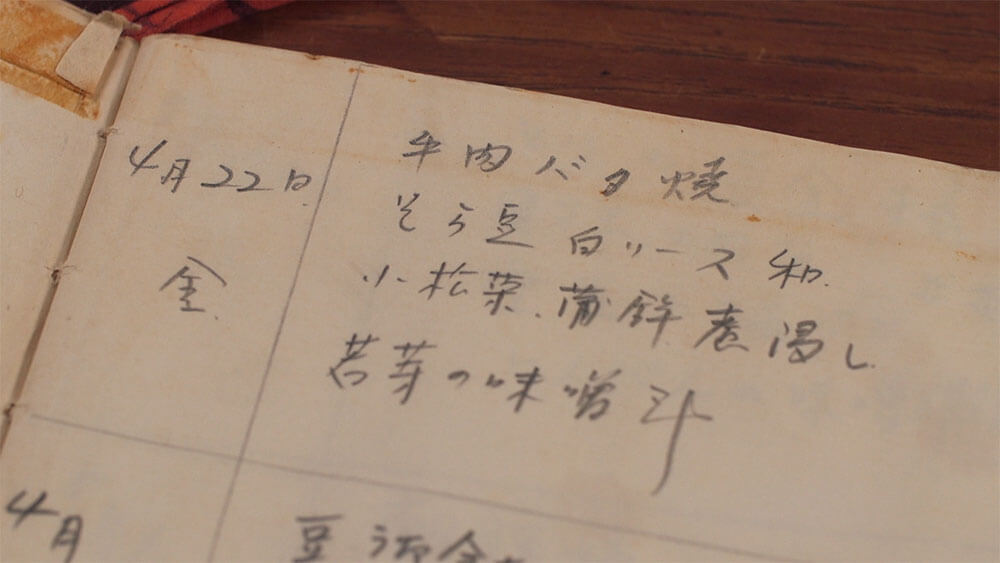 4月22日
金.
牛肉バタ焼
そら豆白ソース和
小松菜、蒲鉾煮浸し
若芽の味噌汁
4月
豆